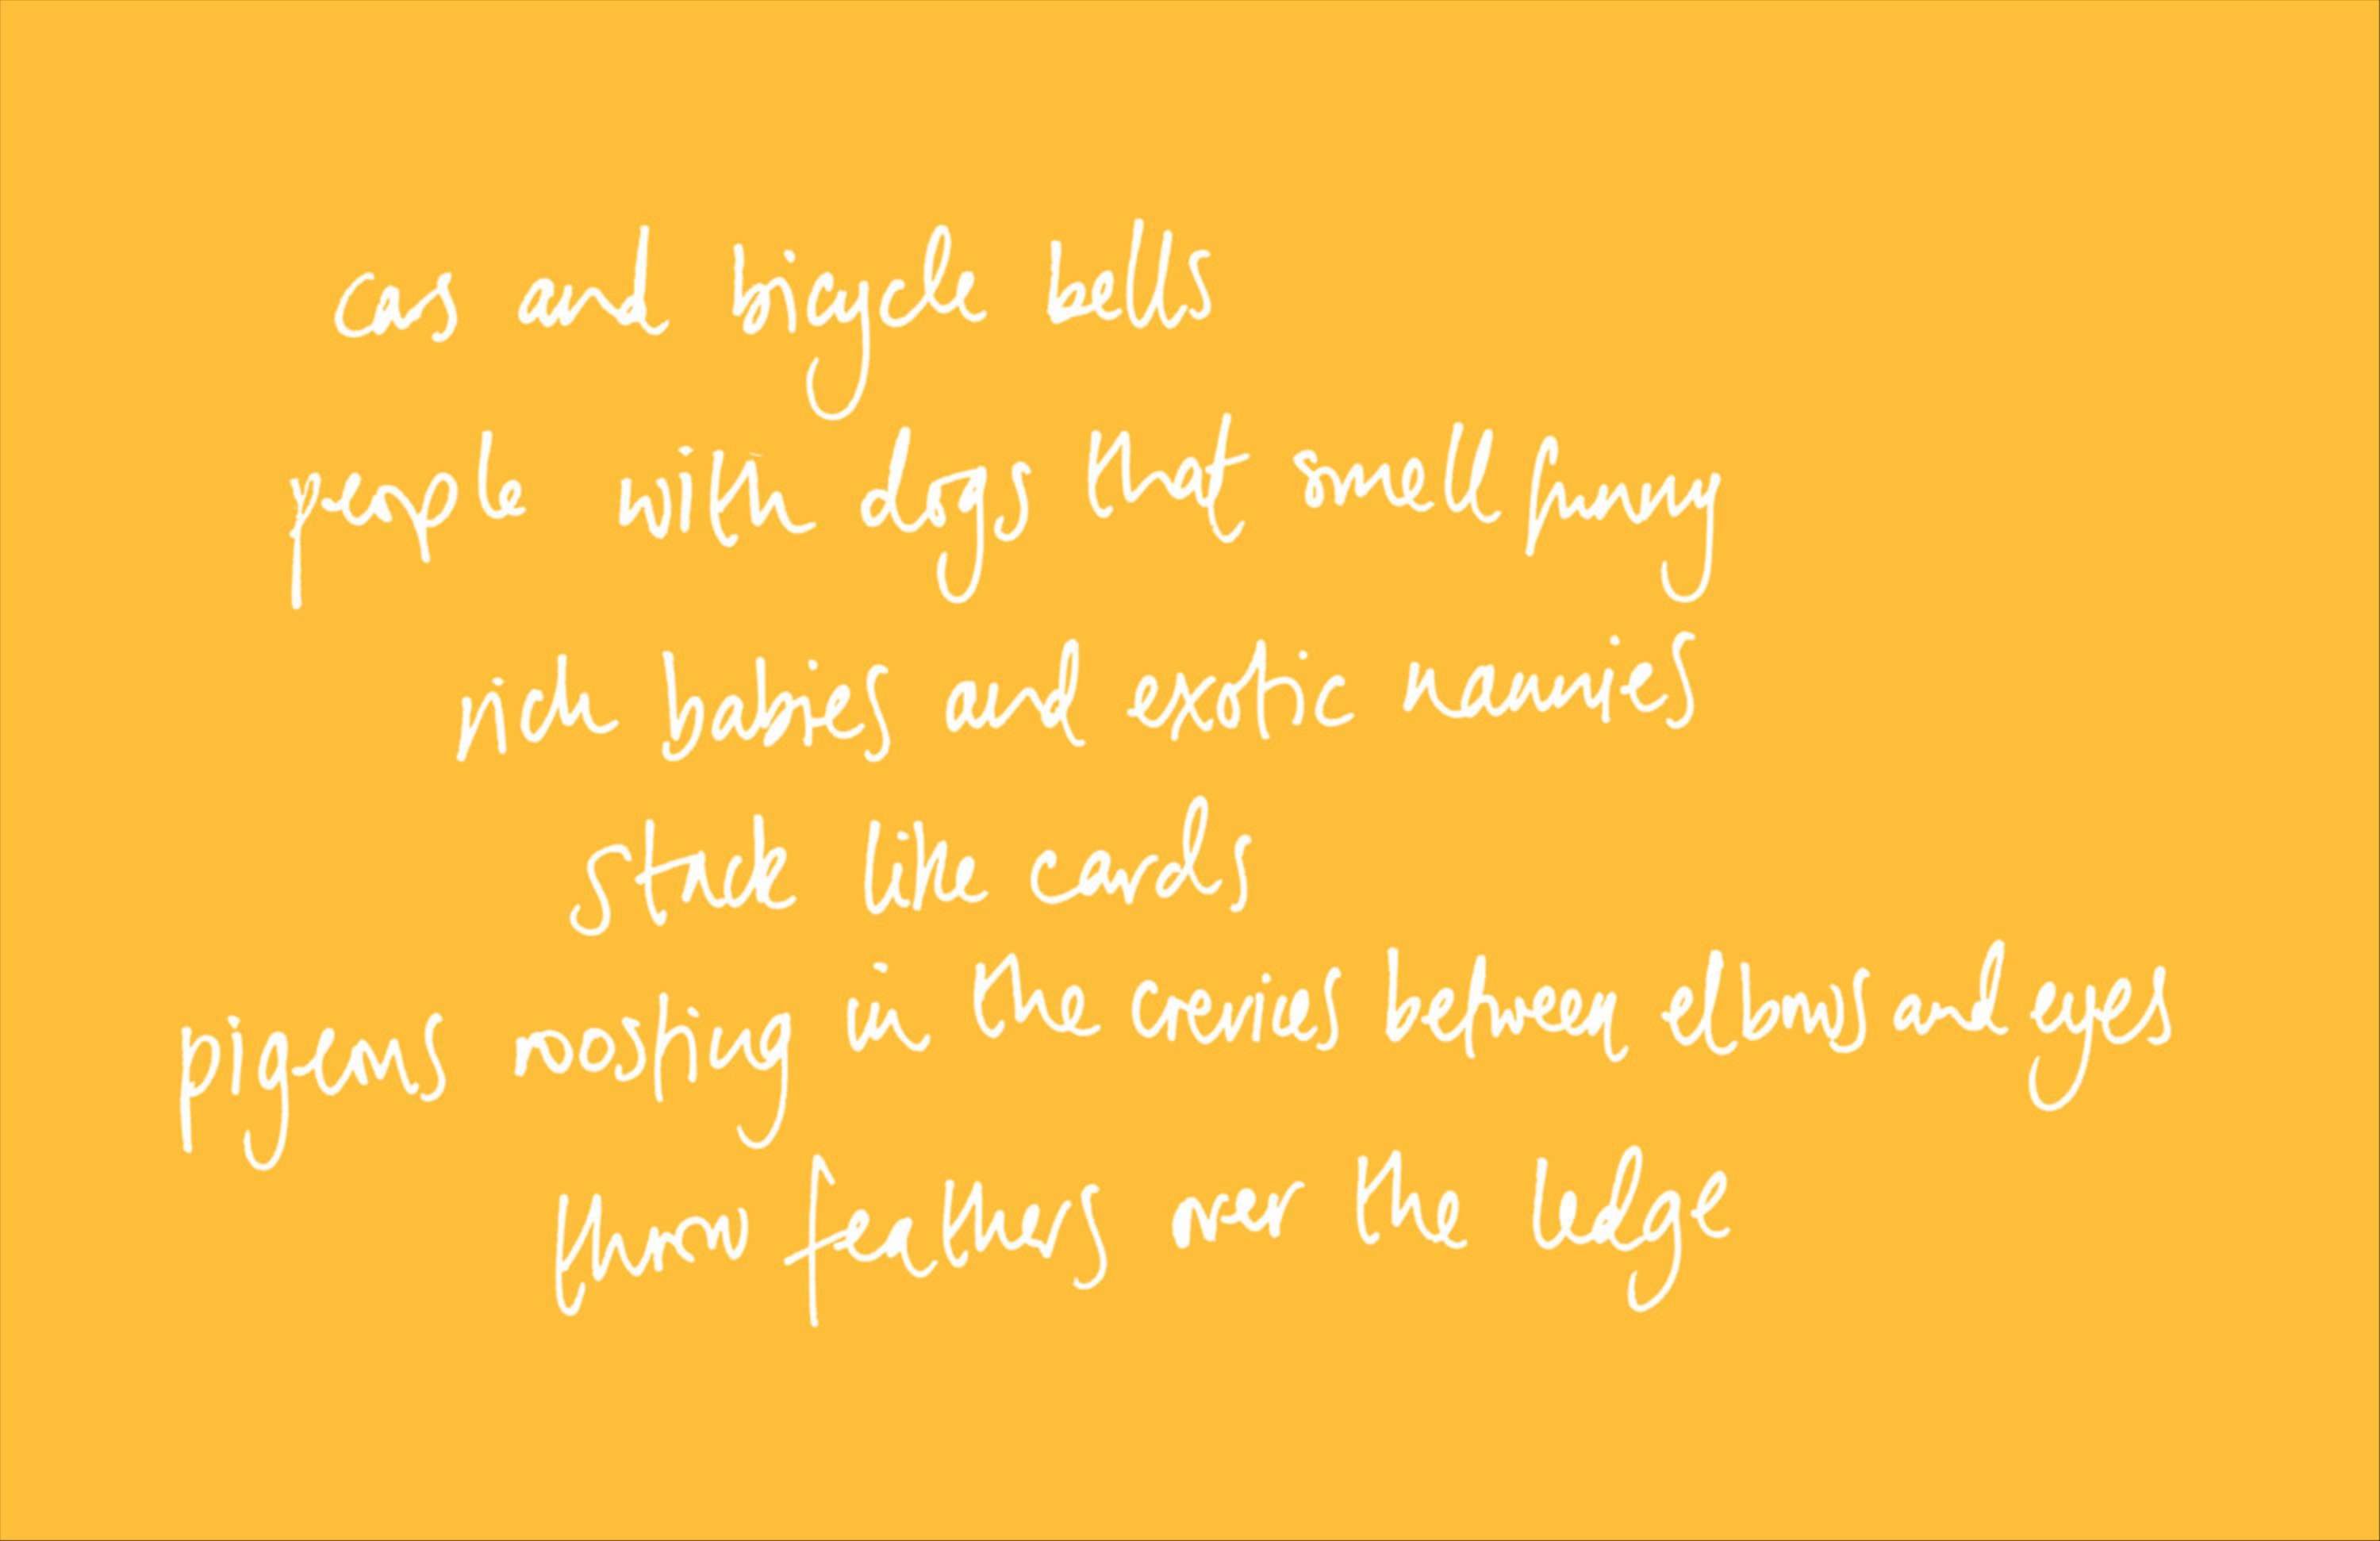 cars and bicycle bells
people with dogs that smell funny
rich babies and exotic nannies
stack like cards
pigeons roosting in the crevices between elbows and eyes
throw feathers over the ledge